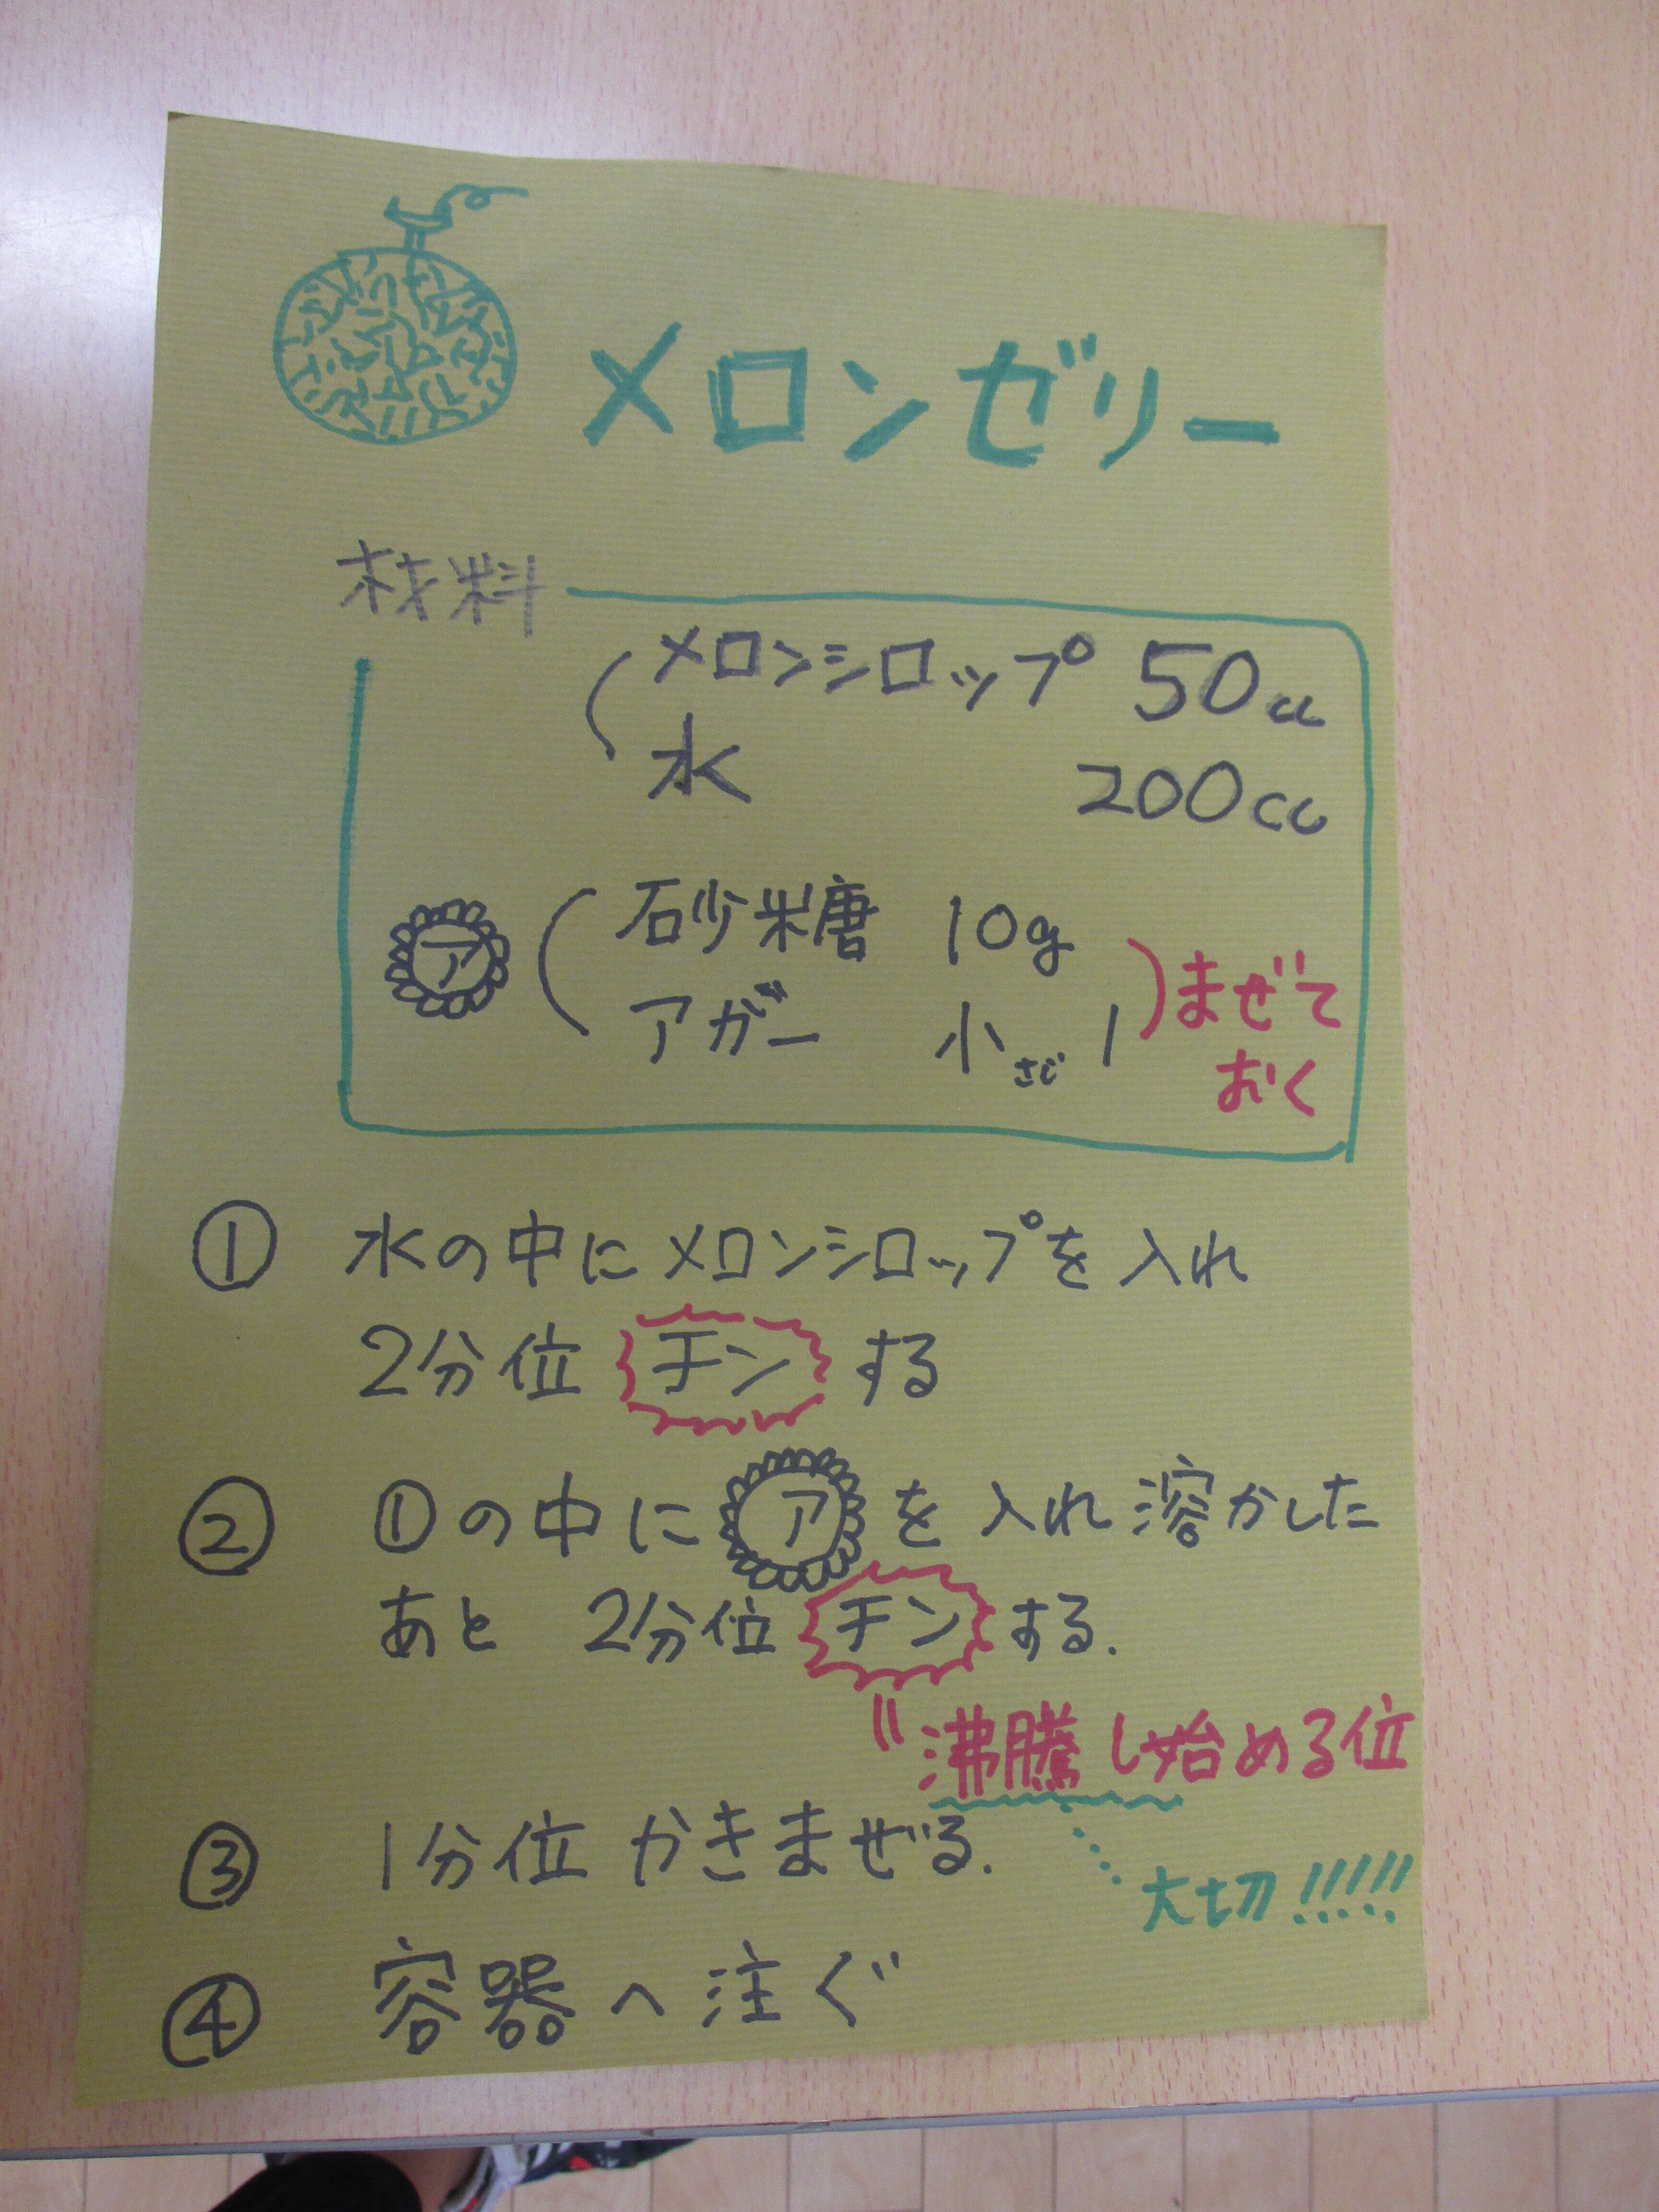 メロンゼリー
材料
メロンシロップ 50cc
水 200cc
ア
砂糖 10g
アガー 小さじ 1
まぜて
おく
① 水の中にメロンシロップを入れ
2分位 チン する
② ①の中に ア を入れ溶かした
あと 2分位 チン する.
〃沸騰し始める位
③ 1分位 かきまぜる.
大切!!!!!
④ 容器へ注ぐ